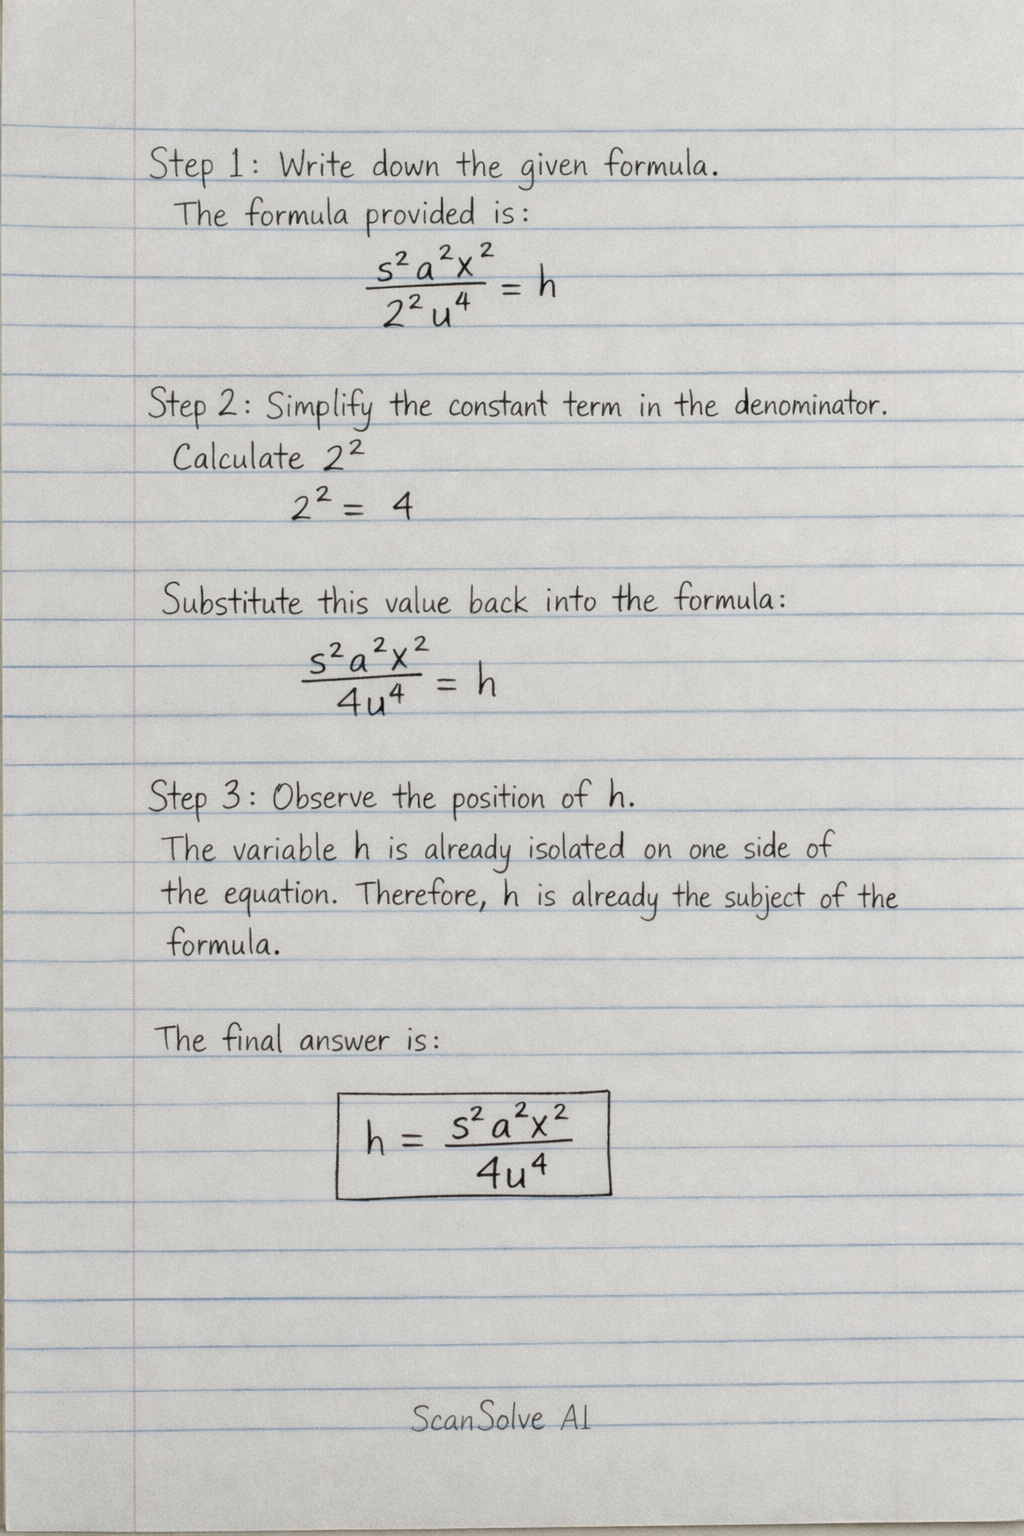 Step 1: Write down the given formula.
The formula provided is:
s²a²x² / 2²u⁴ = h
Step 2: Simplify the constant term in the denominator.
Calculate 2²
2² = 4
Substitute this value back into the formula:
s²a²x² / 4u⁴ = h
Step 3: Observe the position of h.
The variable h is already isolated on one side of
the equation. Therefore, h is already the subject of the
formula.
The final answer is:
h = s²a²x² / 4u⁴
ScanSolve AI